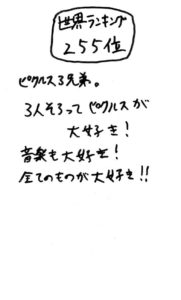 世界ランキング
255位
ピクルス3兄弟。
3人そろってピクルスが
大好き!
音楽も大好き!
全てのものが大好き!!